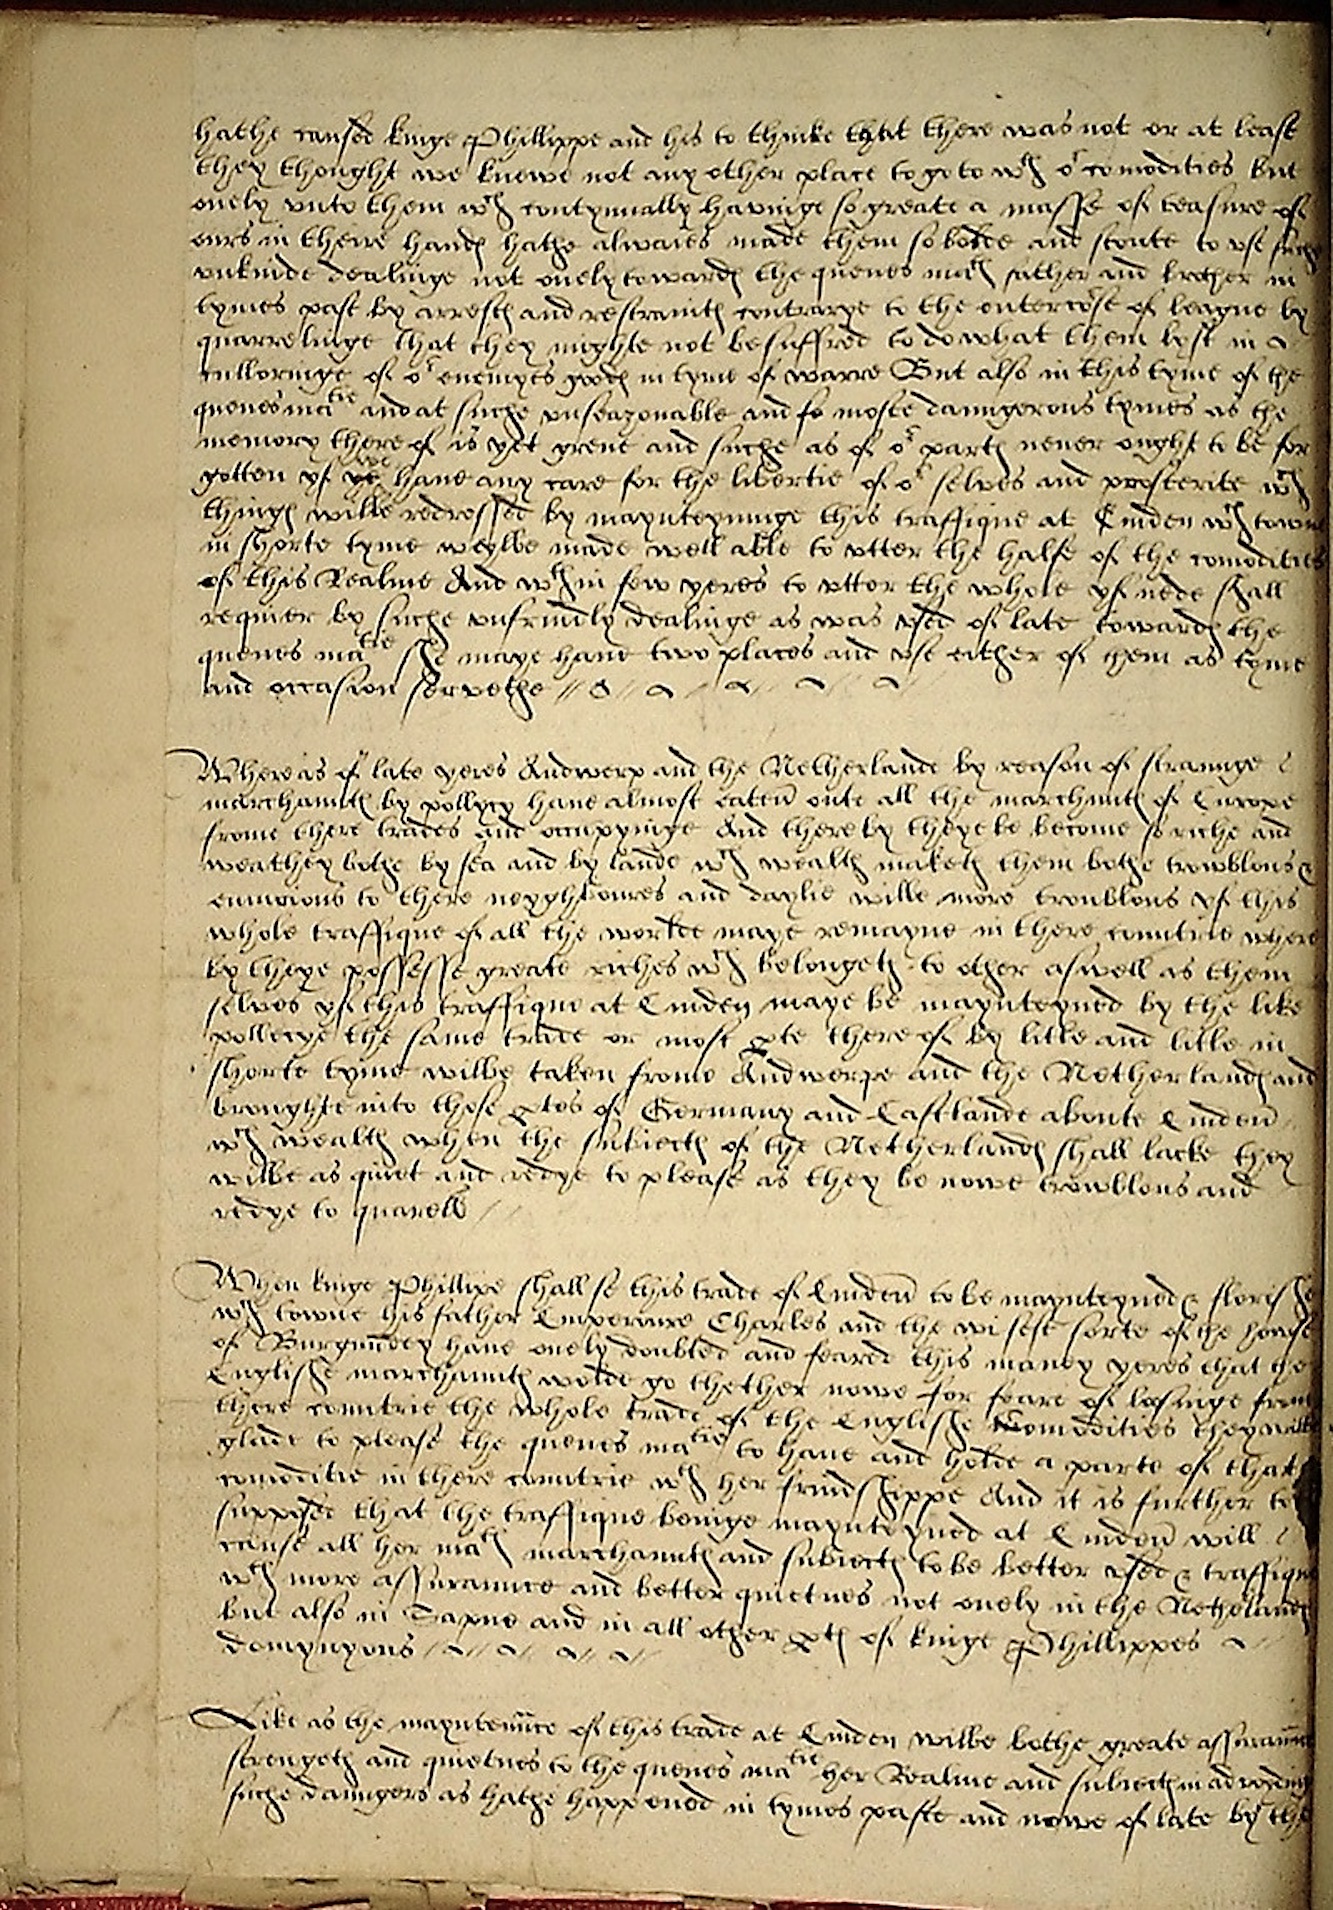 hathe caused kinge Phillippe and his to thinke that there was not or at least
they thought we knewe not any other place to go to wch or comodities but
onely vnto them wch contynually havinge so greate a masse of treasure of
ours in theire handes hathe alwaies made them so bolde and stoute to vse suche
vnkinde dealinge not onely towardes the quenes mates father and brother in
tymes past by arrestes and restraintes contrarye to the entercorse of leagne by
quarrelinge that they mighte not be suffred to do what them lyst in
culloringe of or enemyes goodes in tyme of warre But also in this tyme of the
quenes matie and at suche vnseazonable and so moste daungerous tymes as the
memory there of is yet grene and suche as of or partes never ought to be for
gotten yf we have any care for the libertie of or selves and prosterite wch
thinges wilbe redressed by maynteyninge this traffique at Emden wch towne
in shorte tyme weylbe made well able to vtter the halfe of the comodities
of this Realme And wth in few yeres to vtter the whole yf nede shall
requier by suche vnfrindly dealinge as was vsed of late towardes the
quenes matie she maye have two places and vse either of them as tyme
and occasion servethe
Whereas of late yeres Andwerp and the Netherlande by reason of straunge
marchauntes by pollycy have almost eaten oute all the marchantes of Europe
frome there trades and occupyinge And thereby theye be become so riche and
weathey bothe by sea and by lande wch wealth maketh them bothe trowblous &
enuvious to there neyghboures and daylie wille more troublous yf this
whole traffique of all the worlde maye remayne in there countrie where
by theye possesse greate riches wch belongeth to other aswell as them
selves yf this traffique at Emden maye be maynteyned by the like
pollecye the same trade or most pte there of by litle and litle in
shorte tyme wilbe taken frome Andwerpe and the Netherlandes and
broughte into those ptes of Germany and Eastlande aboute Emden
wch wealth when the subiectes of the Netherlandes shall lacke they
wilbe as quiet and redye to please as they be nowe trowblous and
redye to quarell
When kinge Phillipe shall se this trade of Emden to be maynteyned & florishe
wch towne his father Emperoure Charles and the wisest sorte of the howse
of Burgundey have onely doubted and feared this maney yeres that the
Englishe marchauntes wolde go thether nowe for feare of loosinge from
there countrie the whole trade of the Englishe Comodities they wilbe
glade to please the quenes matie to have and holde a parte of that
comoditie in there countrie wth her frindshippe And it is further to be
supposed that the traffique beinge maynteyned at Emden will
cause all her mates marchauntes and subiectes to be better vsed & traffique
wth more assuraunce and better quietnes not onely in the Netherlandes
but also in Spayne and in all other ptes of kinge Phillippes
domynyons
Like as the mayntenunce of this trade at Emden wilbe bothe greate assuraunce
strengeth and quietnes to the quenes matie her Realme and subiectes in advoydinge
suche daungers as hathe happened in tymes paste and nowe of late by the